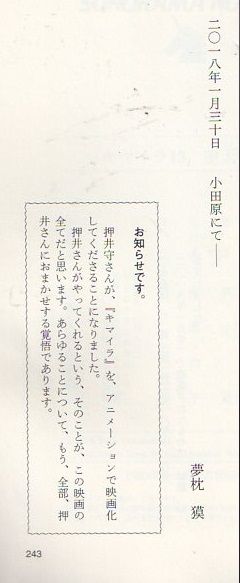 二〇一八年一月三十日　小田原にて――
夢枕　獏
お知らせです。
押井守さんが、『キマイラ』を、アニメーションで映画化
してくださることになりました。
押井さんがやってくれるという、そのことが、この映画の
全てだと思います。あらゆることについて、もう、全部、押
井さんにおまかせする覚悟であります。
243